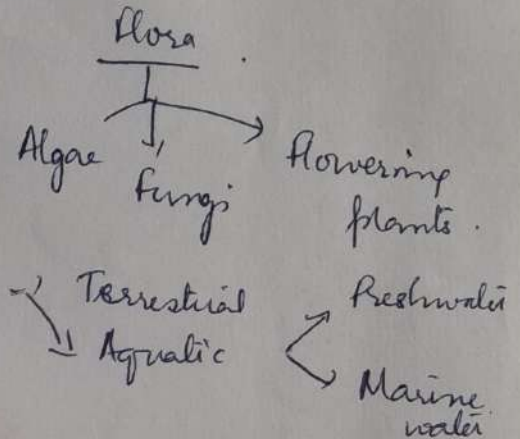 Flora
Algae
Fungi
Flowering
plants.
Terrestrial
Aquatic
Freshwater
Marine
water